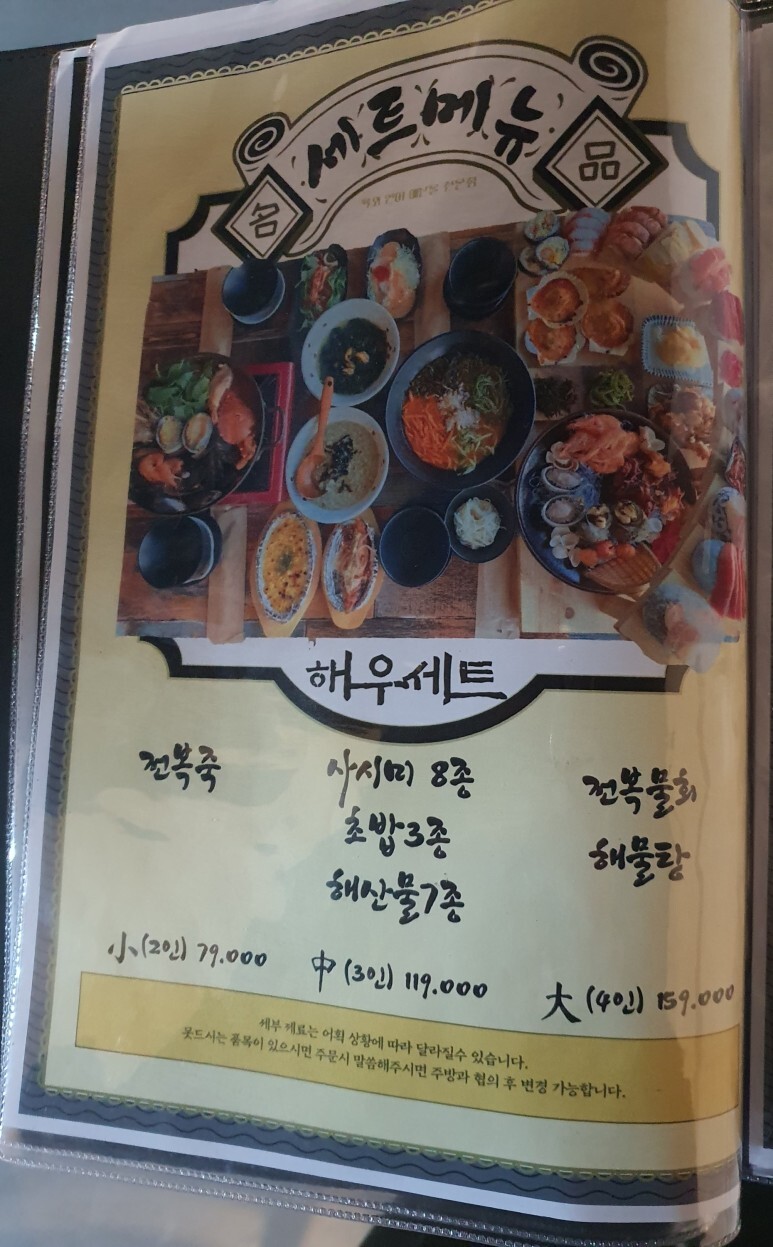 세트메뉴
名
品
해우세트
전복죽
사시미 8종
초밥3종
해산물7종
전복물회
해물탕
小(2인) 79.000
中(3인) 119.000
大(4인) 159.000
세부 재료는 어획 상황에 따라 달라질수 있습니다.
못드시는 품목이 있으시면 주문시 말씀해주시면 주방과 협의 후 변경 가능합니다.